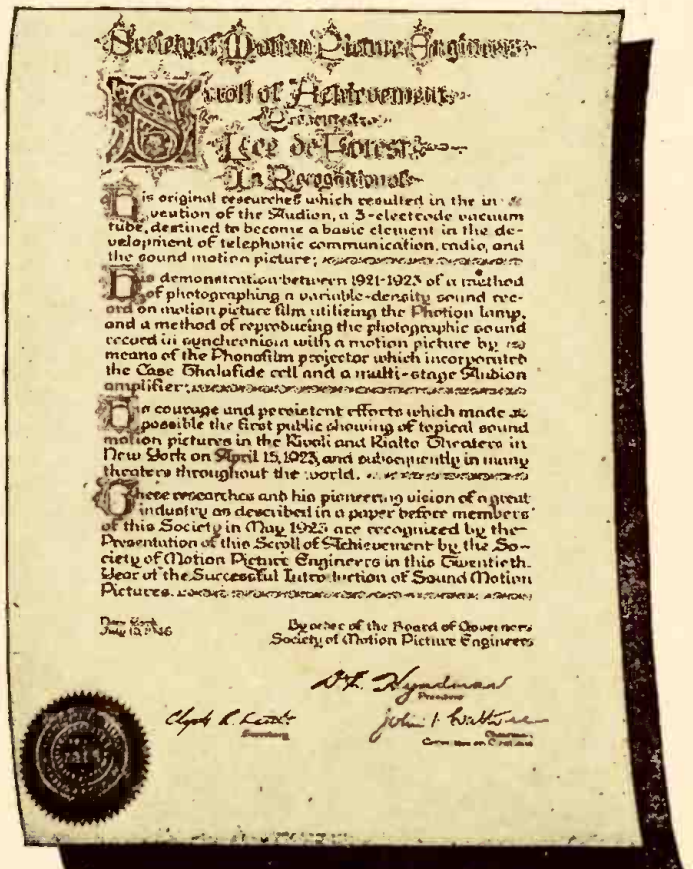 Society of Motion Picture Engineers
Scroll of Achievement
Presented to
Lee de Forest
In Recognition of
His original researches which resulted in the in-
vention of the Audion, a 3-electrode vacuum
tube, destined to become a basic element in the de-
velopment of telephonic communication, radio, and
the sound motion picture;
His demonstration between 1921-1923 of a method
of photographing a variable-density sound rec-
ord on motion picture film utilizing the Photion lamp,
and a method of reproducing the photographic sound
record in synchronism with a motion picture by
means of the Phonofilm projector which incorporated
the Case Thalofide cell and a multi-stage Audion
amplifier;
His courage and persistent efforts which made
possible the first public showing of topical sound
motion pictures in the Rivoli and Rialto Theaters in
New York on April 15, 1923, and subsequently in many
theaters throughout the world.
These researches and his pioneering vision of a great
industry as described in a paper before members
of this Society in May 1923 are recognized by the
Presentation of this Scroll of Achievement by the So-
ciety of Motion Picture Engineers in this Twentieth
Year of the Successful Introduction of Sound Motion
Pictures.
New York
July 1946
By order of the Board of Governors
Society of Motion Picture Engineers
D. E. Hyndman
President
Clyde R.
Secretary
John I.
Chairman